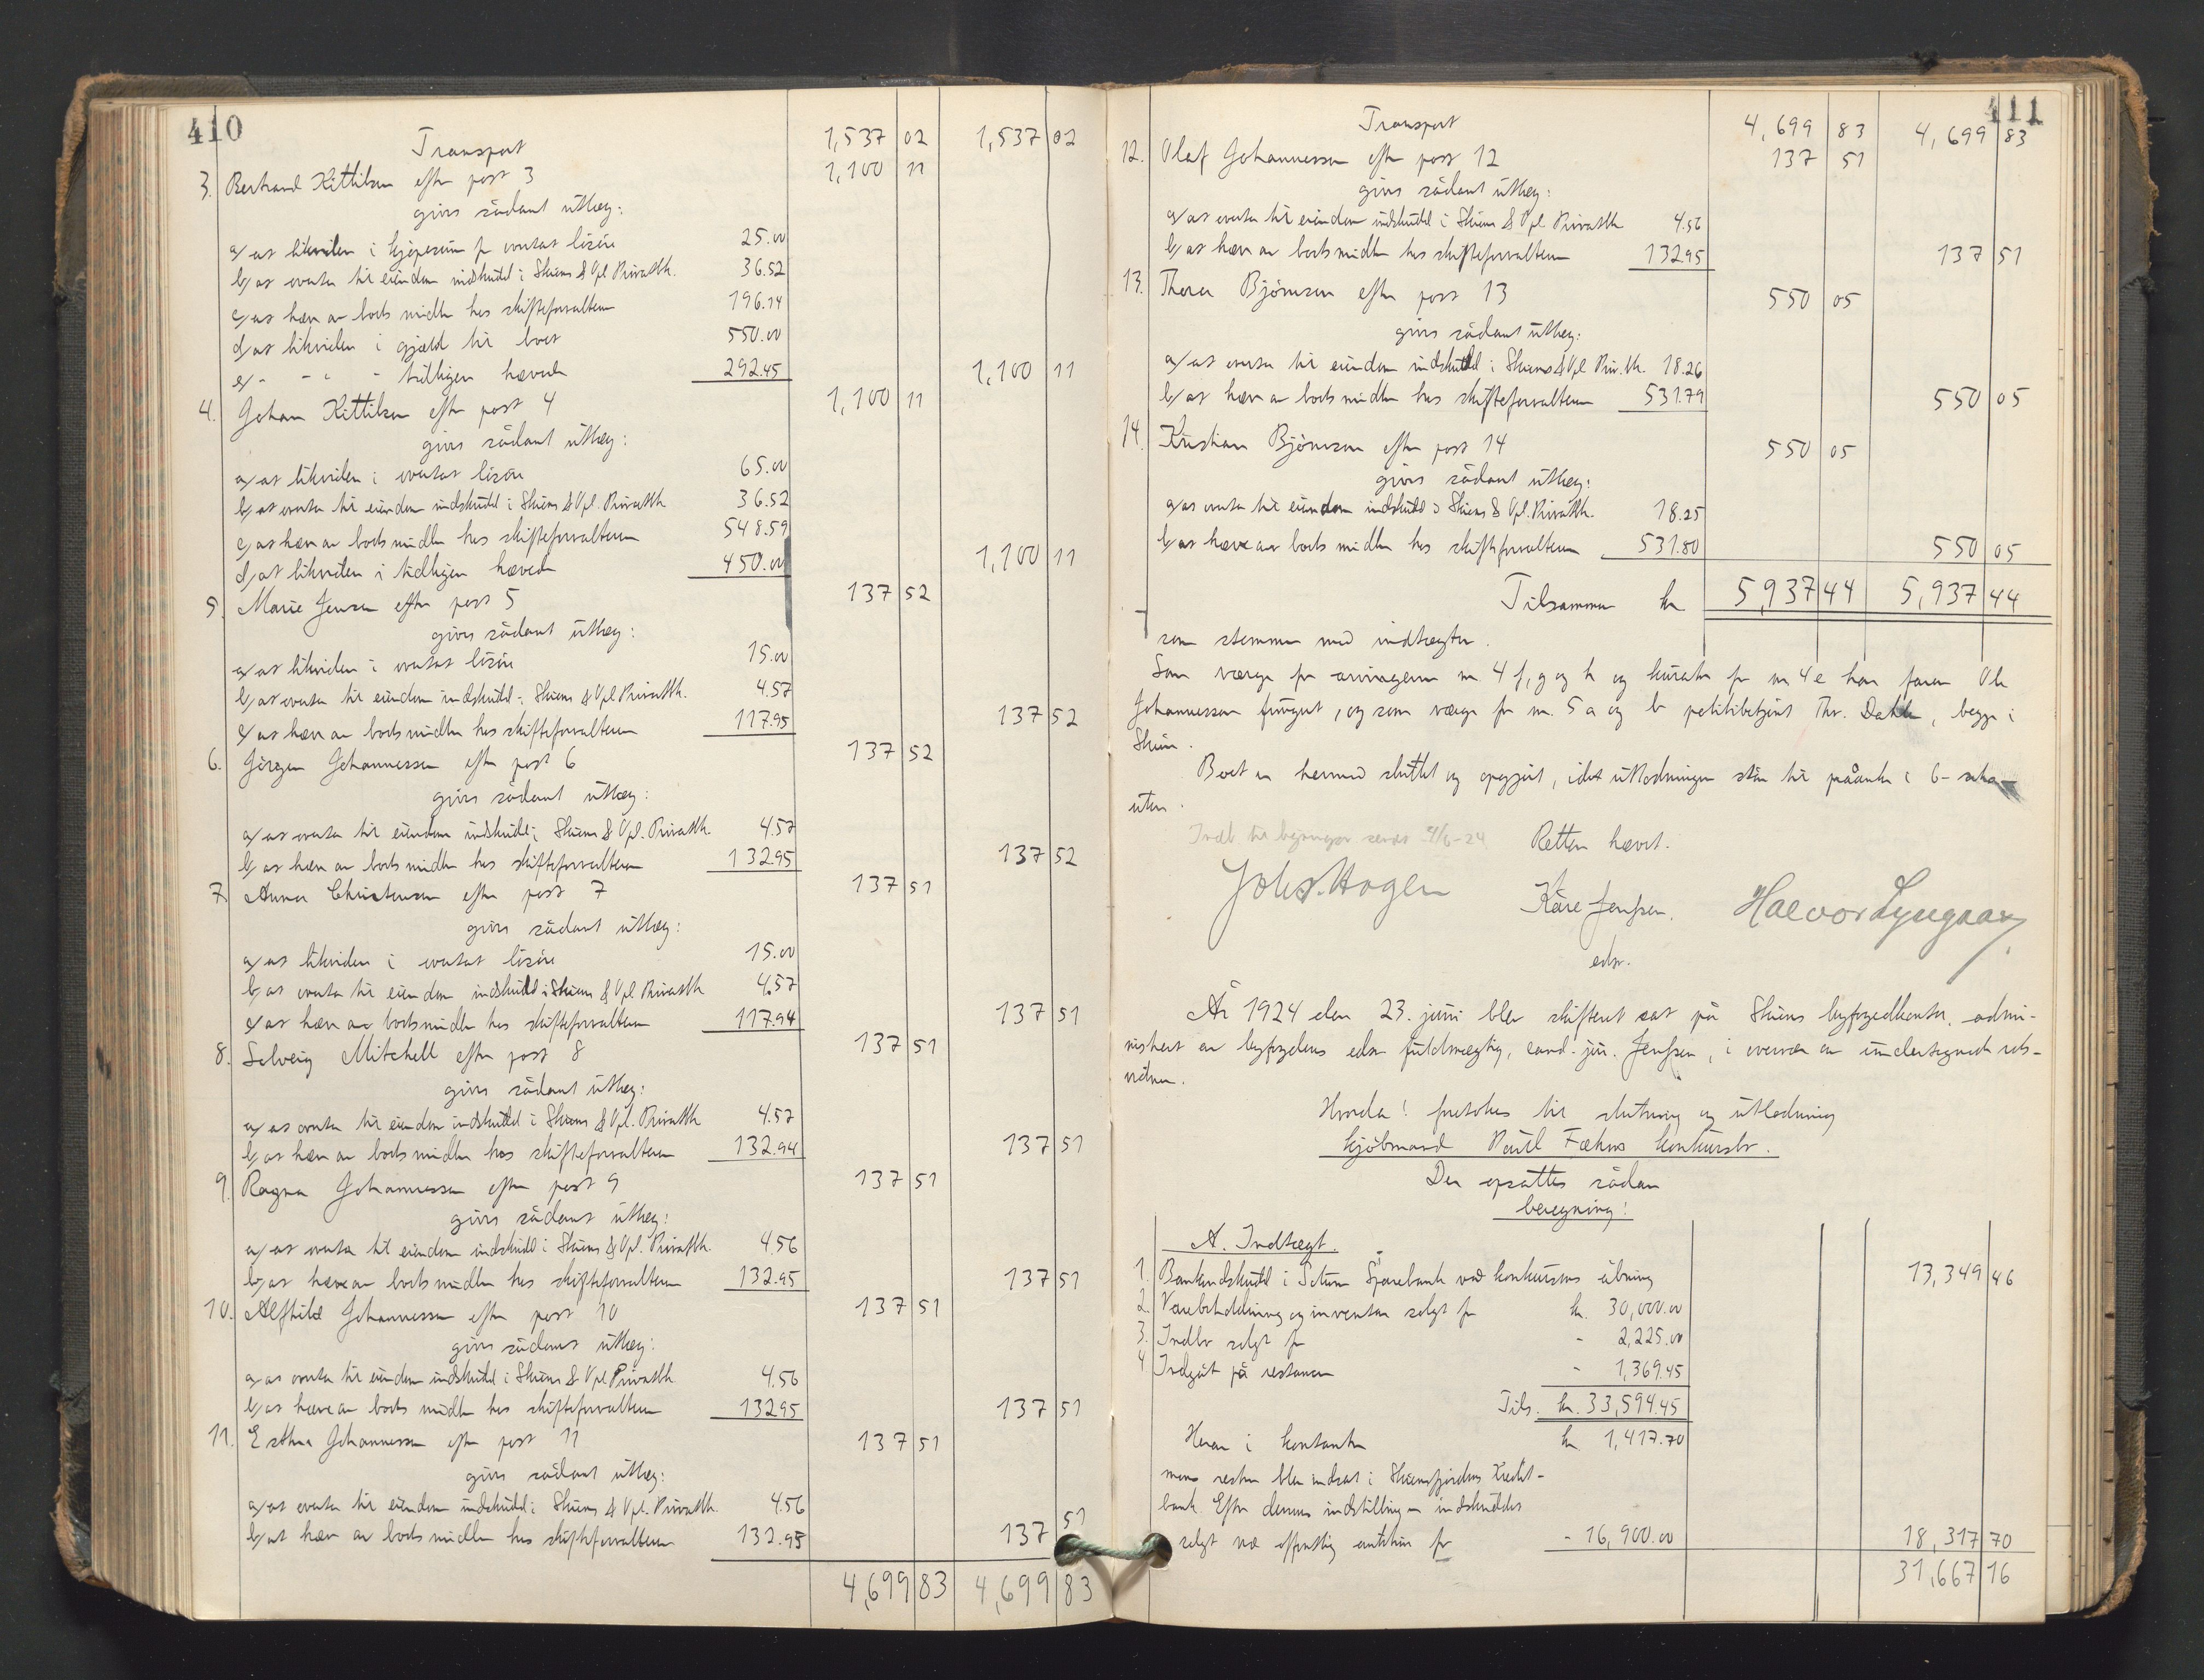 410
Transport 1,537 02 1,537 02
3. Bertrand Kittilsen efter post 3 1,100 11
givs sådant utlæg:
a/ at likvidere i kjøpesum for overtat løsøre 25.00
b/ at overta til eiendom indskudd i Skiens & Opl. Privatbk. 36.52
c/ at hæve av boets midler hos skifteforvalteren 196.14
d/ at likvidere i gjæld til boet 550.00
e/ - - " - tidligere hævede 292.45 1,100 11
4. Johan Kittilsen efter post 4 1,100 11
givs sådant utlæg:
a/ at likvidere i overtat løsøre 65.00
b/ at overta til eiendom indskudd i Skiens & Opl. Privatbk 36.52
c/ at hæve av boets midler hos skifteforvalteren 548.59
d/ at likvidere i tidligere hævede 450.00 1,100 11
5. Marie Jensen efter post 5 137 52
givs sådant utlæg:
a/ at likvidere i overtat løsøre 15.00
b/ at overta til eiendom indskudd i Skiens & Opl. Privatbk. 4.57
c/ at hæve av boets midler hos skifteforvalteren 117.95 137 52
6. Jørgen Johannessen efter post 6 137 52
givs sådant utlæg:
a/ at overta til eiendom indskudd i Skiens & Opl. Privatbk. 4.57
b/ at hæve av boets midler hos skifteforvalteren 132.95 137 52
7. Anna Christensen efter post 7 137 51
givs sådant utlæg:
a/ at likvidere i overtat løsøre 15.00
b/ at overta til eiendom indskudd i Skiens & Opl. Privatbk 4.57
c/ at hæve av boets midler hos skifteforvalteren 117.94 137 51
8. Solveig Mitchell efter post 8 137 51
givs sådant utlæg:
a/ at overta til eiendom indskudd i Skiens & Opl. Privatbk 4.57
b/ at hæve av boets midler hos skifteforvalteren 132.94 137 51
9. Ragna Johannessen efter post 9 137 51
givs sådant utlæg:
a/ at overta til eiendom indskudd i Skiens & Opl. Privatbk. 4.56
b/ at hæve av boets midler hos skifteforvalteren 132.95 137 51
10. Alfhild Johannessen efter post 10 137 51
givs sådant utlæg:
a/ at overta til eiendom indskudd i Skiens & Opl. Privatbk 4.56
b/ at hæve av boets midler hos skifteforvalteren 132.95 137 51
11. Esther Johannessen efter post 11 137 51
givs sådant utlæg:
a/ at overta til eiendom indskudd i Skiens & Opl. Privatbk. 4.56
b/ at hæve av boets midler hos skifteforvalteren 132.95 137 51
4,699 83 4,699 83
411
Transport 4,699 83 4,699 83
12. Olaf Johannessen efter post 12 137 51
givs sådant utlæg:
a/ at overta til eiendom indskudd i Skiens & Opl. Privatbk 4.56
b/ at hæve av boets midler hos skifteforvalteren 132.95 137 51
13. Thora Bjørnsen efter post 13 550 05
givs sådant utlæg:
a/ at overta til eiendom indskudd i Skiens & Opl. Priv.bk. 18.26
b/ at hæve av boets midler hos skifteforvalteren 531.79 550 05
14. Kristian Bjørnsen efter post 14 550 05
givs sådant utlæg:
a/ at overta til eiendom indskudd i Skiens & Opl. Privatbk. 18.25
b/ at hæve av boets midler hos skifteforvalteren 531.80 550 05
Tilsammen kr 5,937 44 5,937 44
som stemmer med indtægten.
Som værge for arvingerne nr. 4 f, g og h og kurator for nr 4e har faren Ole
Johannessen fungert, og som værge for nr. 5 a og b politibetjent Thv. Dahle, begge i
Skien.
Boet er hermed sluttet og opgjort, idet utlodningen står til påanke i 6- seks
uker.
Retten hævet.
Johs. Hagen Kåre Jenssen. Halvor Lyngaas
edsv.
År 1924 den 23. juni blev skifteret sat på Skiens byfogedkontor, admi-
nistrert av byfogdens edsv fuldmægtig, cand. jur. Jenssen, i overvær av undertegnede rets-
vidner.
Hvorda! foretokes til slutning og utlodning
kjøbmand Paul Fæhns konkursbo.
Der opsattes sådan
beregning!
A. Indtægt.
1. Bankindskudd i Solum Sparebank ved konkursens åbning 13,349 46
2. Varebeholdning og inventar solgt for kr. 30,000.00
3. Indbo solgt for - 2,225.00
4 Indgåt på restancer - 1,369.45
Tils. kr. 33,594.45
Herav i kontanter kr 1,417.70
mens resten blev indsat i Skiensfjordens Kredit-
bank. Efter dennes indstilling er indskuddet
solgt ved offentlig auktion for - 16,900.00 18,317 70
31,667 16